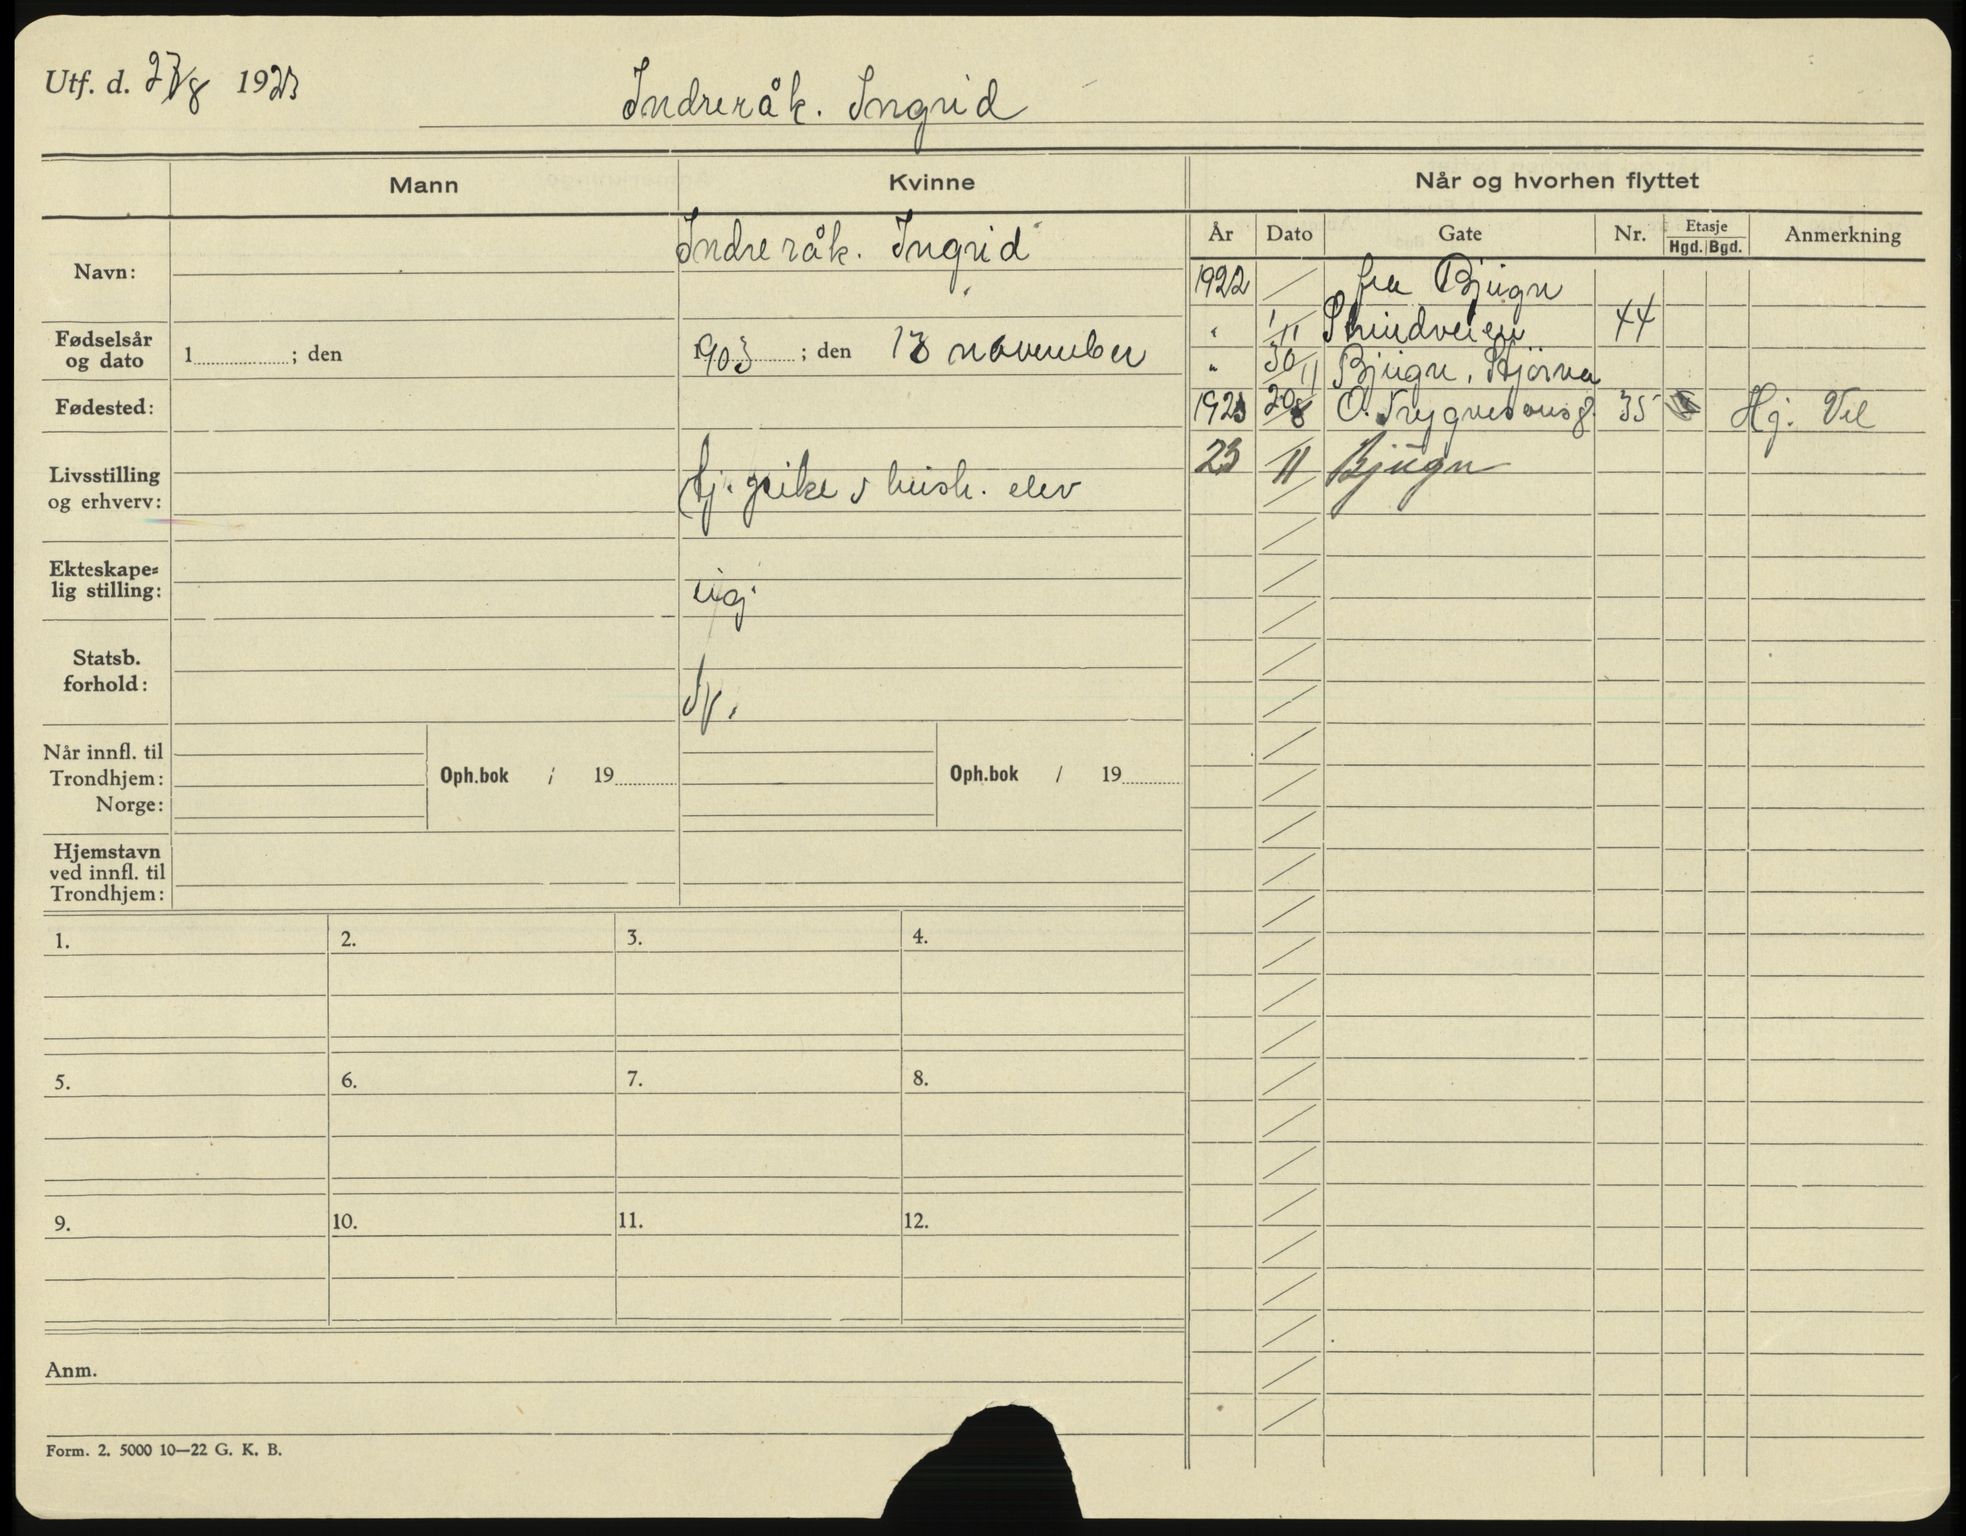 Utf. d. 27/8 1923
Indreråk. Ingrid
Mann Kvinne Når og hvorhen flyttet
År Dato Gate Nr. Etasje Hgd. Bgd. Anmerkning
Navn: Indreråk. Ingrid
Fødselsår og dato 1 ; den 1903 ; den 13 november
Fødested:
Livsstilling og erhverv: tj. pike, hush. elev
Ekteskape= lig stilling: ugj.
Statsb. forhold:
Når innfl. til Trondhjem: Norge:
Oph.bok / 19
Oph.bok / 19
Hjemstavn ved innfl. til Trondhjem:
1922 / fra Bjugn
" 1/11 Strindveien 44
" 30/11 Bjugn, Stjørna
1923 20/8 O. Trygvesonsg. 35 Hj. Vel
23 /11 Bjugn
1. 2. 3. 4.
5. 6. 7. 8.
9. 10. 11. 12.
Anm.
Form. 2. 5000 10—22 G. K. B.